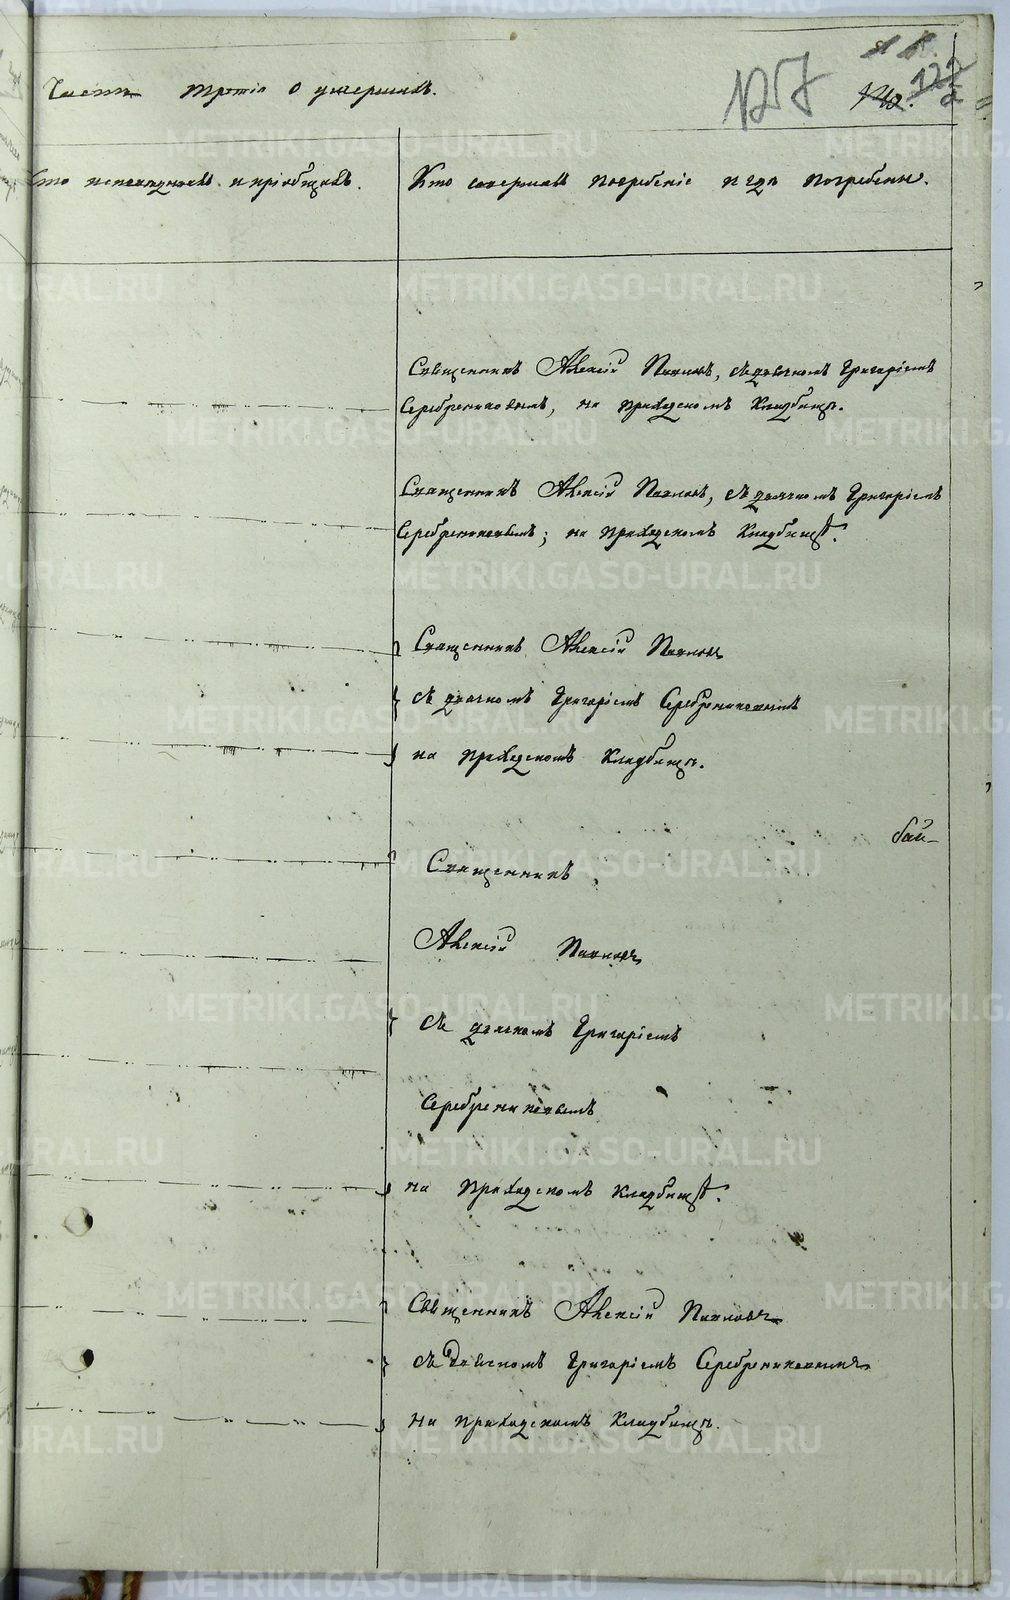 Часть третія о умершихъ.
127
122
Кто исповѣдывалъ и пріобщалъ.
Кто совершалъ погребеніе и гдѣ погребены.
Священникъ Алексій Поповъ, съ дьячкомъ Григоріемъ
Серебрениковымъ, на приходскомъ кладбищѣ.
Священникъ Алексій Поповъ, съ дьячкомъ Григоріемъ
Серебрениковымъ; на приходскомъ кладбищѣ.
Священникъ Алексій Поповъ
съ дьячкомъ Григоріемъ Серебрениковымъ
на приходскомъ кладбищѣ.
бай-
Священникъ
Алексій Поповъ
съ дьячкомъ Григоріемъ
Серебрениковымъ
на приходскомъ кладбищѣ.
Священникъ Алексій Поповъ
съ дьячкомъ Григоріемъ Серебрениковымъ
на приходскомъ кладбищѣ.
METRIKI.GASO-URAL.RU